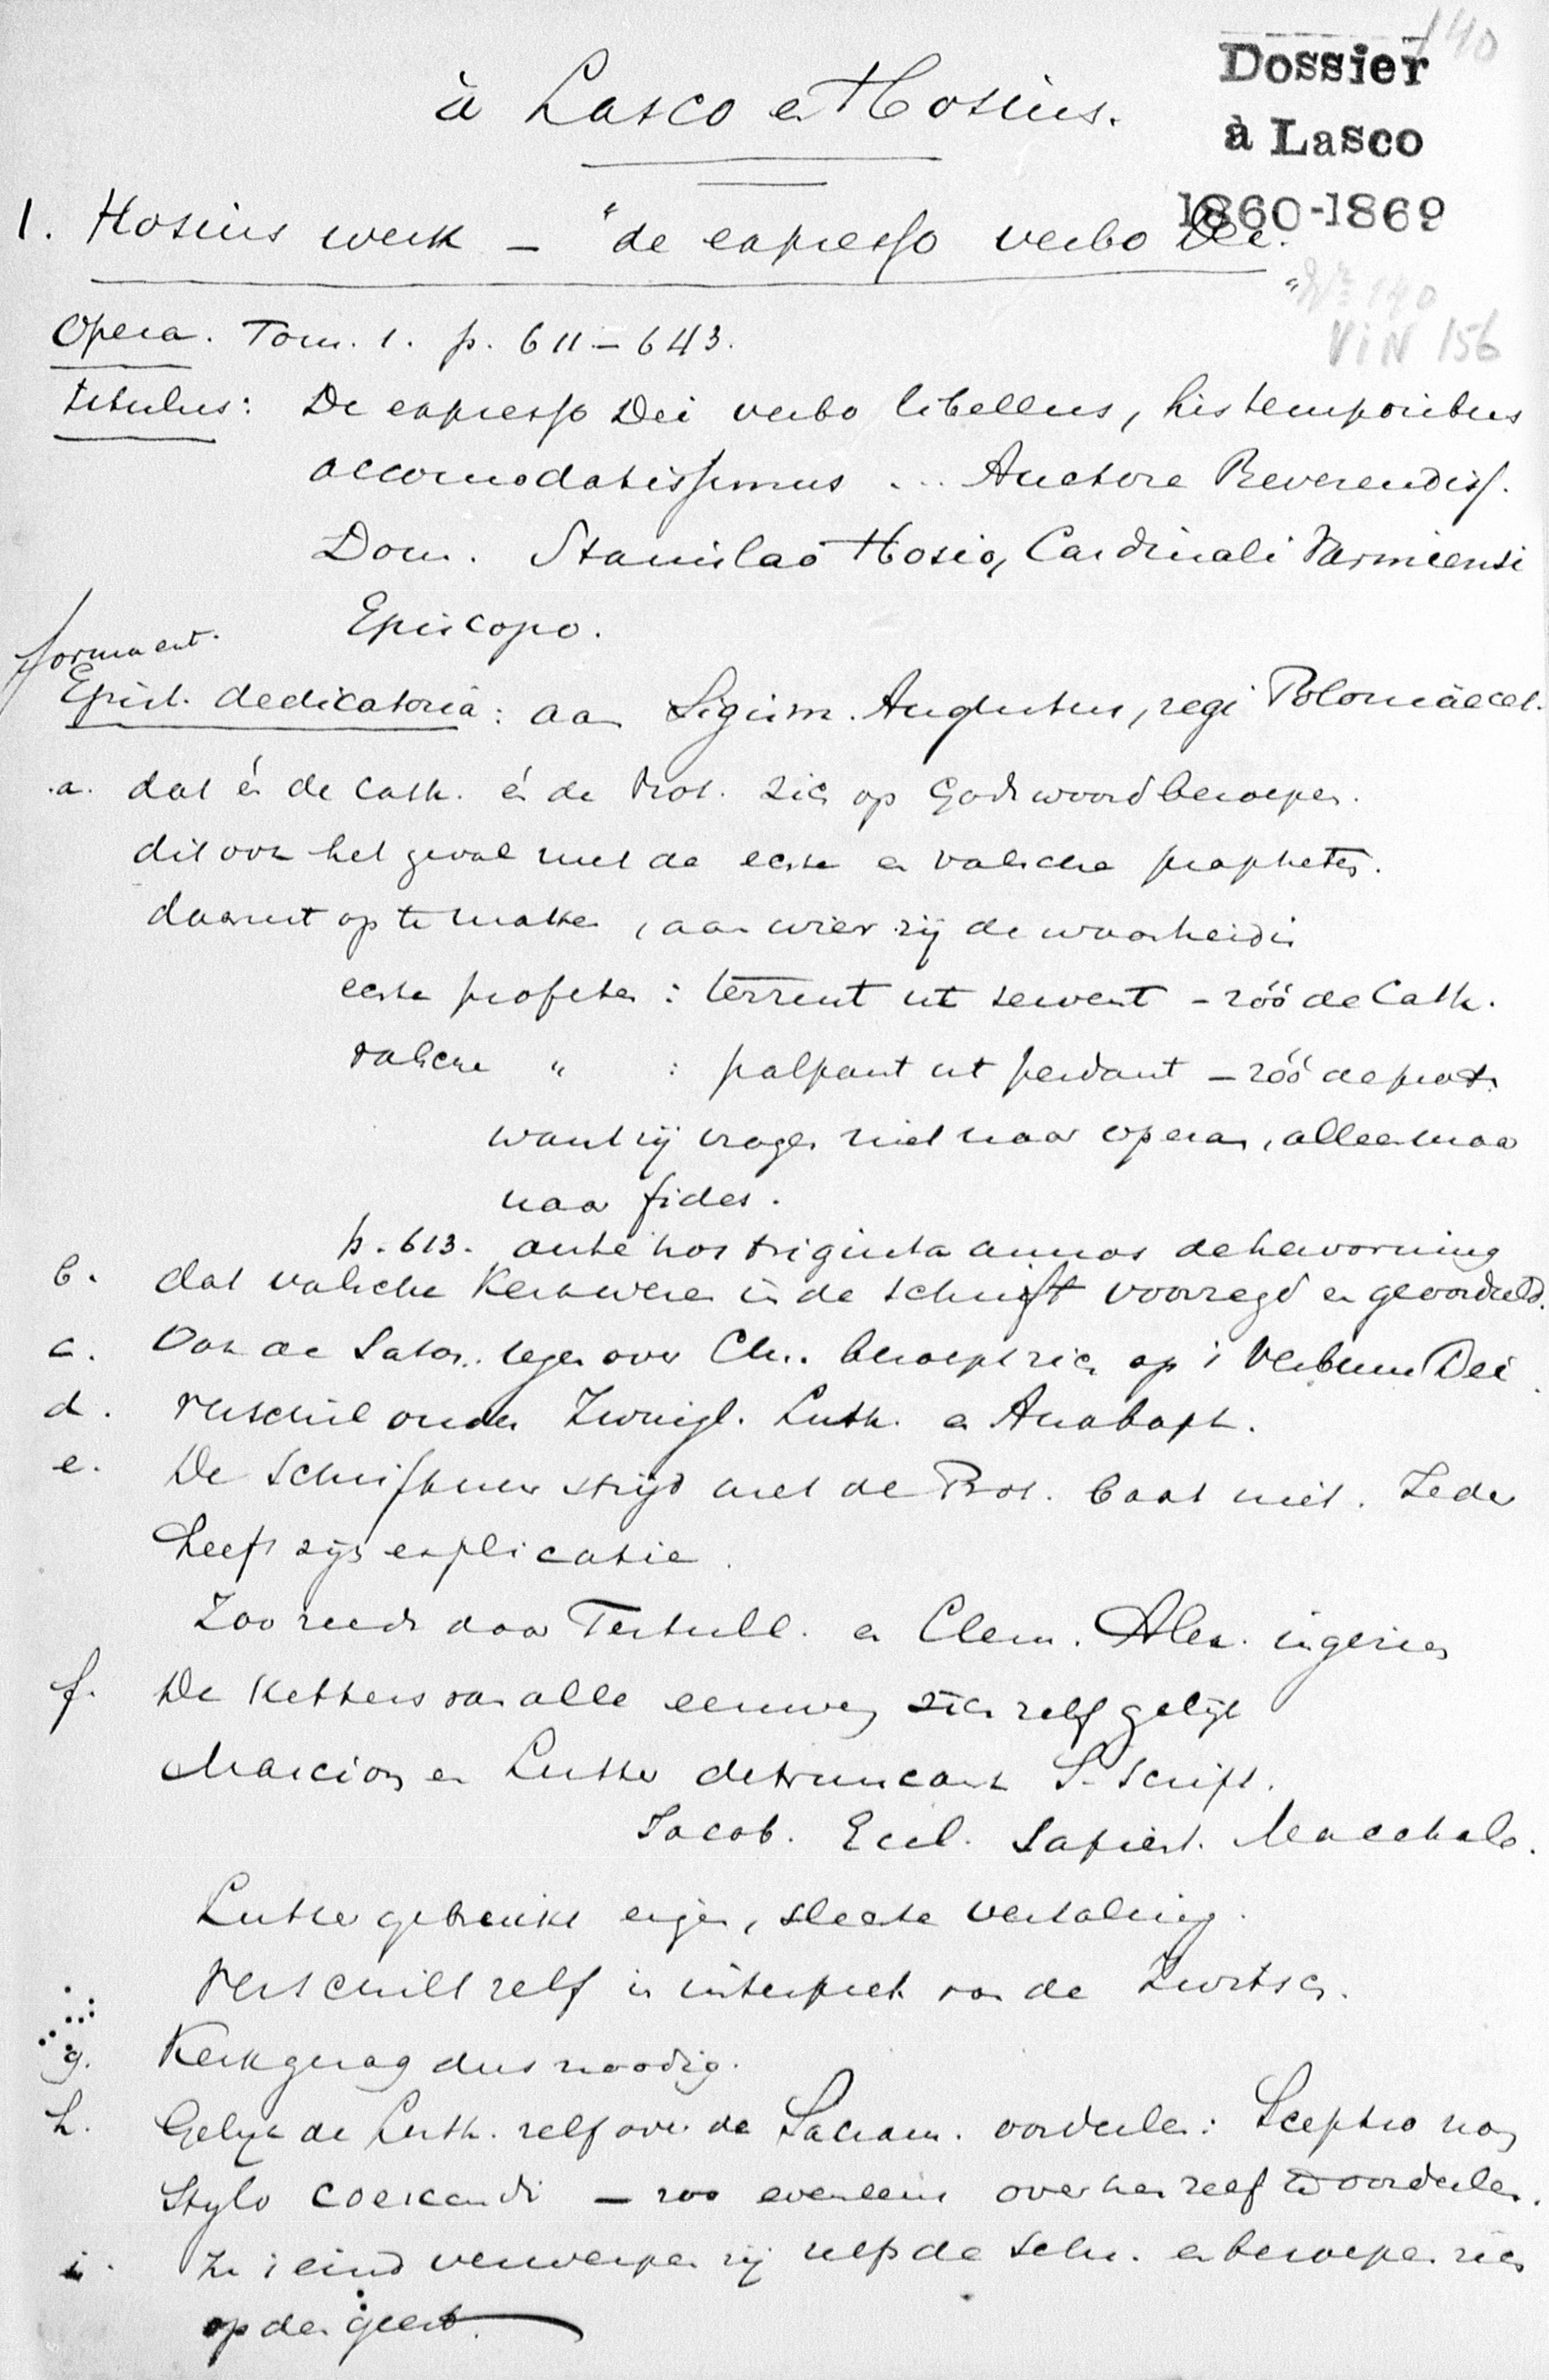 140
Dossier
à Lasco
1860-1869
à Lasco en Hosius.
1. Hosius werk — "de expresso verbo Dei."
No 140
VIN 156
Opera. Tom. 1. p. 611-643.
titulus: De expresso Dei verbo libellus, his temporibus
accomodatissimus ... Auctore Reverendiss.
Dom. Stanislao Hosio, Cardinali Varmiensi
Episcopo.
forment.
Epist. dedicatoria: aan Sigism. Augustus, regi Poloniae cet.
a. dat én de Cath. én de Prot. zich op Gods woord beroepen.
dit ook het geval met de echte en valsche propheten.
daaruit op te maken, aan wier zij de waarheid is
echte profeten: terrent ut servent – zóó de Cath.
valsche " : palpant ut perdant – zóó de prot.
want zij vragen niet naar operas, alleen maar
naar fides.
p. 613. ante hos triginta annos de hervorming
b. dat valsche Kerkweren in de schrift voorzegd en geoordeeld.
c. Ook de Satan tegen over Chr. beroept zich op 't Verbum Dei.
d. Verschil onder Zwingl. Luth. en Anabapt.
e. De Schriftuur strijd met de Prot. baat niet. Ieder
heeft zijn explicatie.
Zoo reeds door Tertull. en Clem. Alex. ingezien
f. De Ketters van alle eeuwen zich zelf gelijk
Marcion en Luther detruncant S. Script.
Jacob. Eccl. Sapient. Macchab.
Luther gebruikt eigen, slechte vertaling.
Verschilt zelf in interpret van de Zwitsers.
g. Kerkgezag dus noodig.
h. Gelijk de Luth. zelf over de Sacram. oordeelen: Sceptro non
Stylo coercendi – zoo eveneens over hen zelf te oordeelen.
i. In 't eind verwerpen zij zelfs de Schr. en beroepen zich
op den geest.